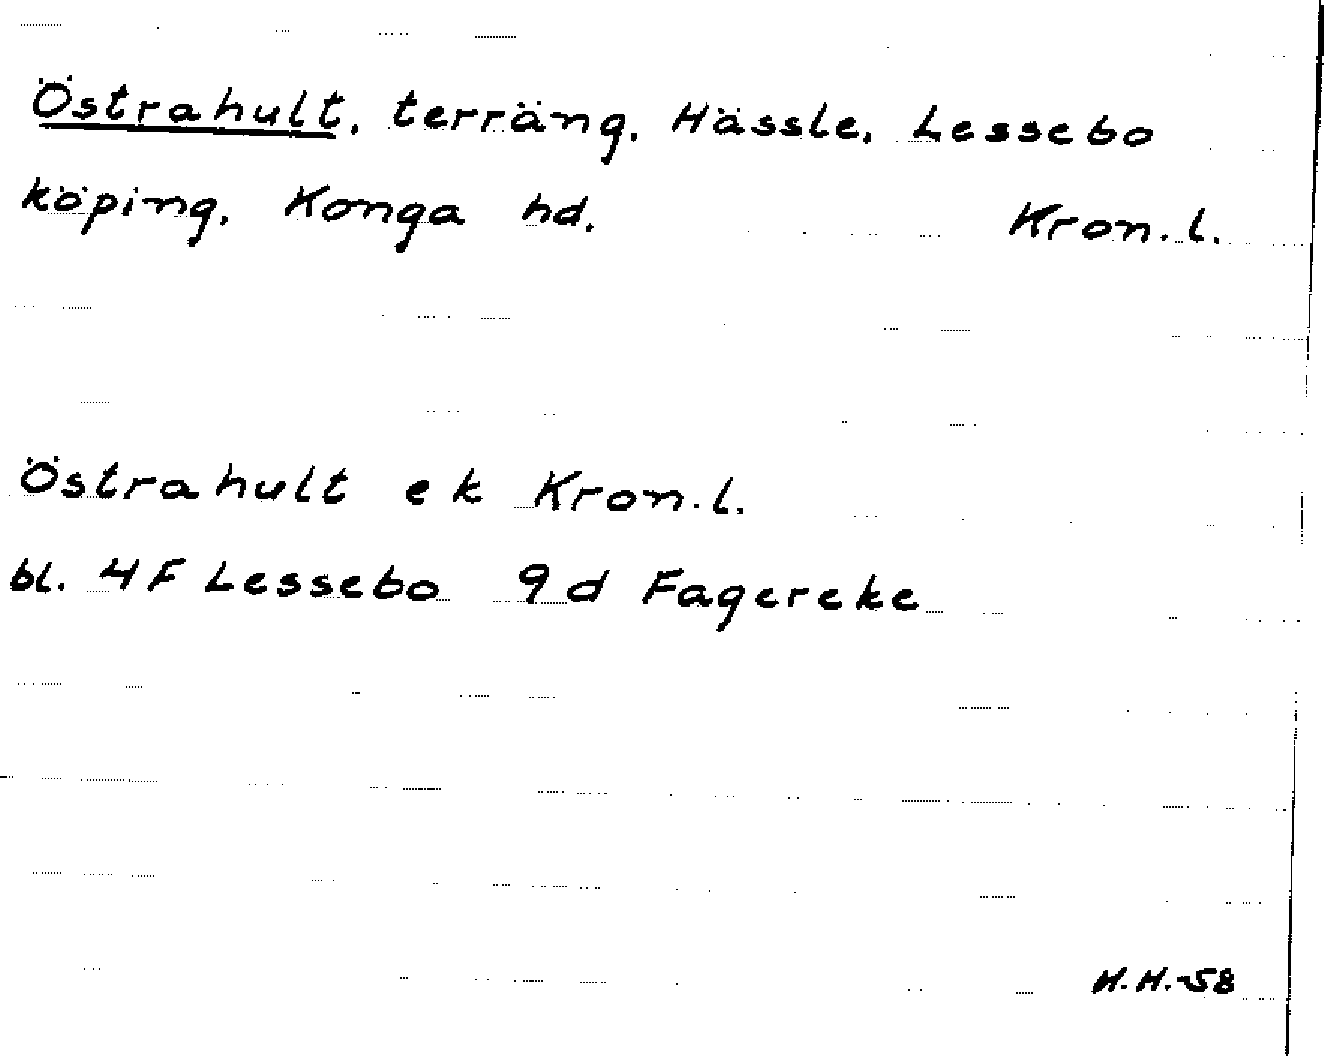 Östrahult, terräng, Hässle, Lessebo
köping, Konga hd. Kron.l.
Östrahult ek Kron.l.
bl. 4F Lessebo 9d Fagereke
H.H.-58